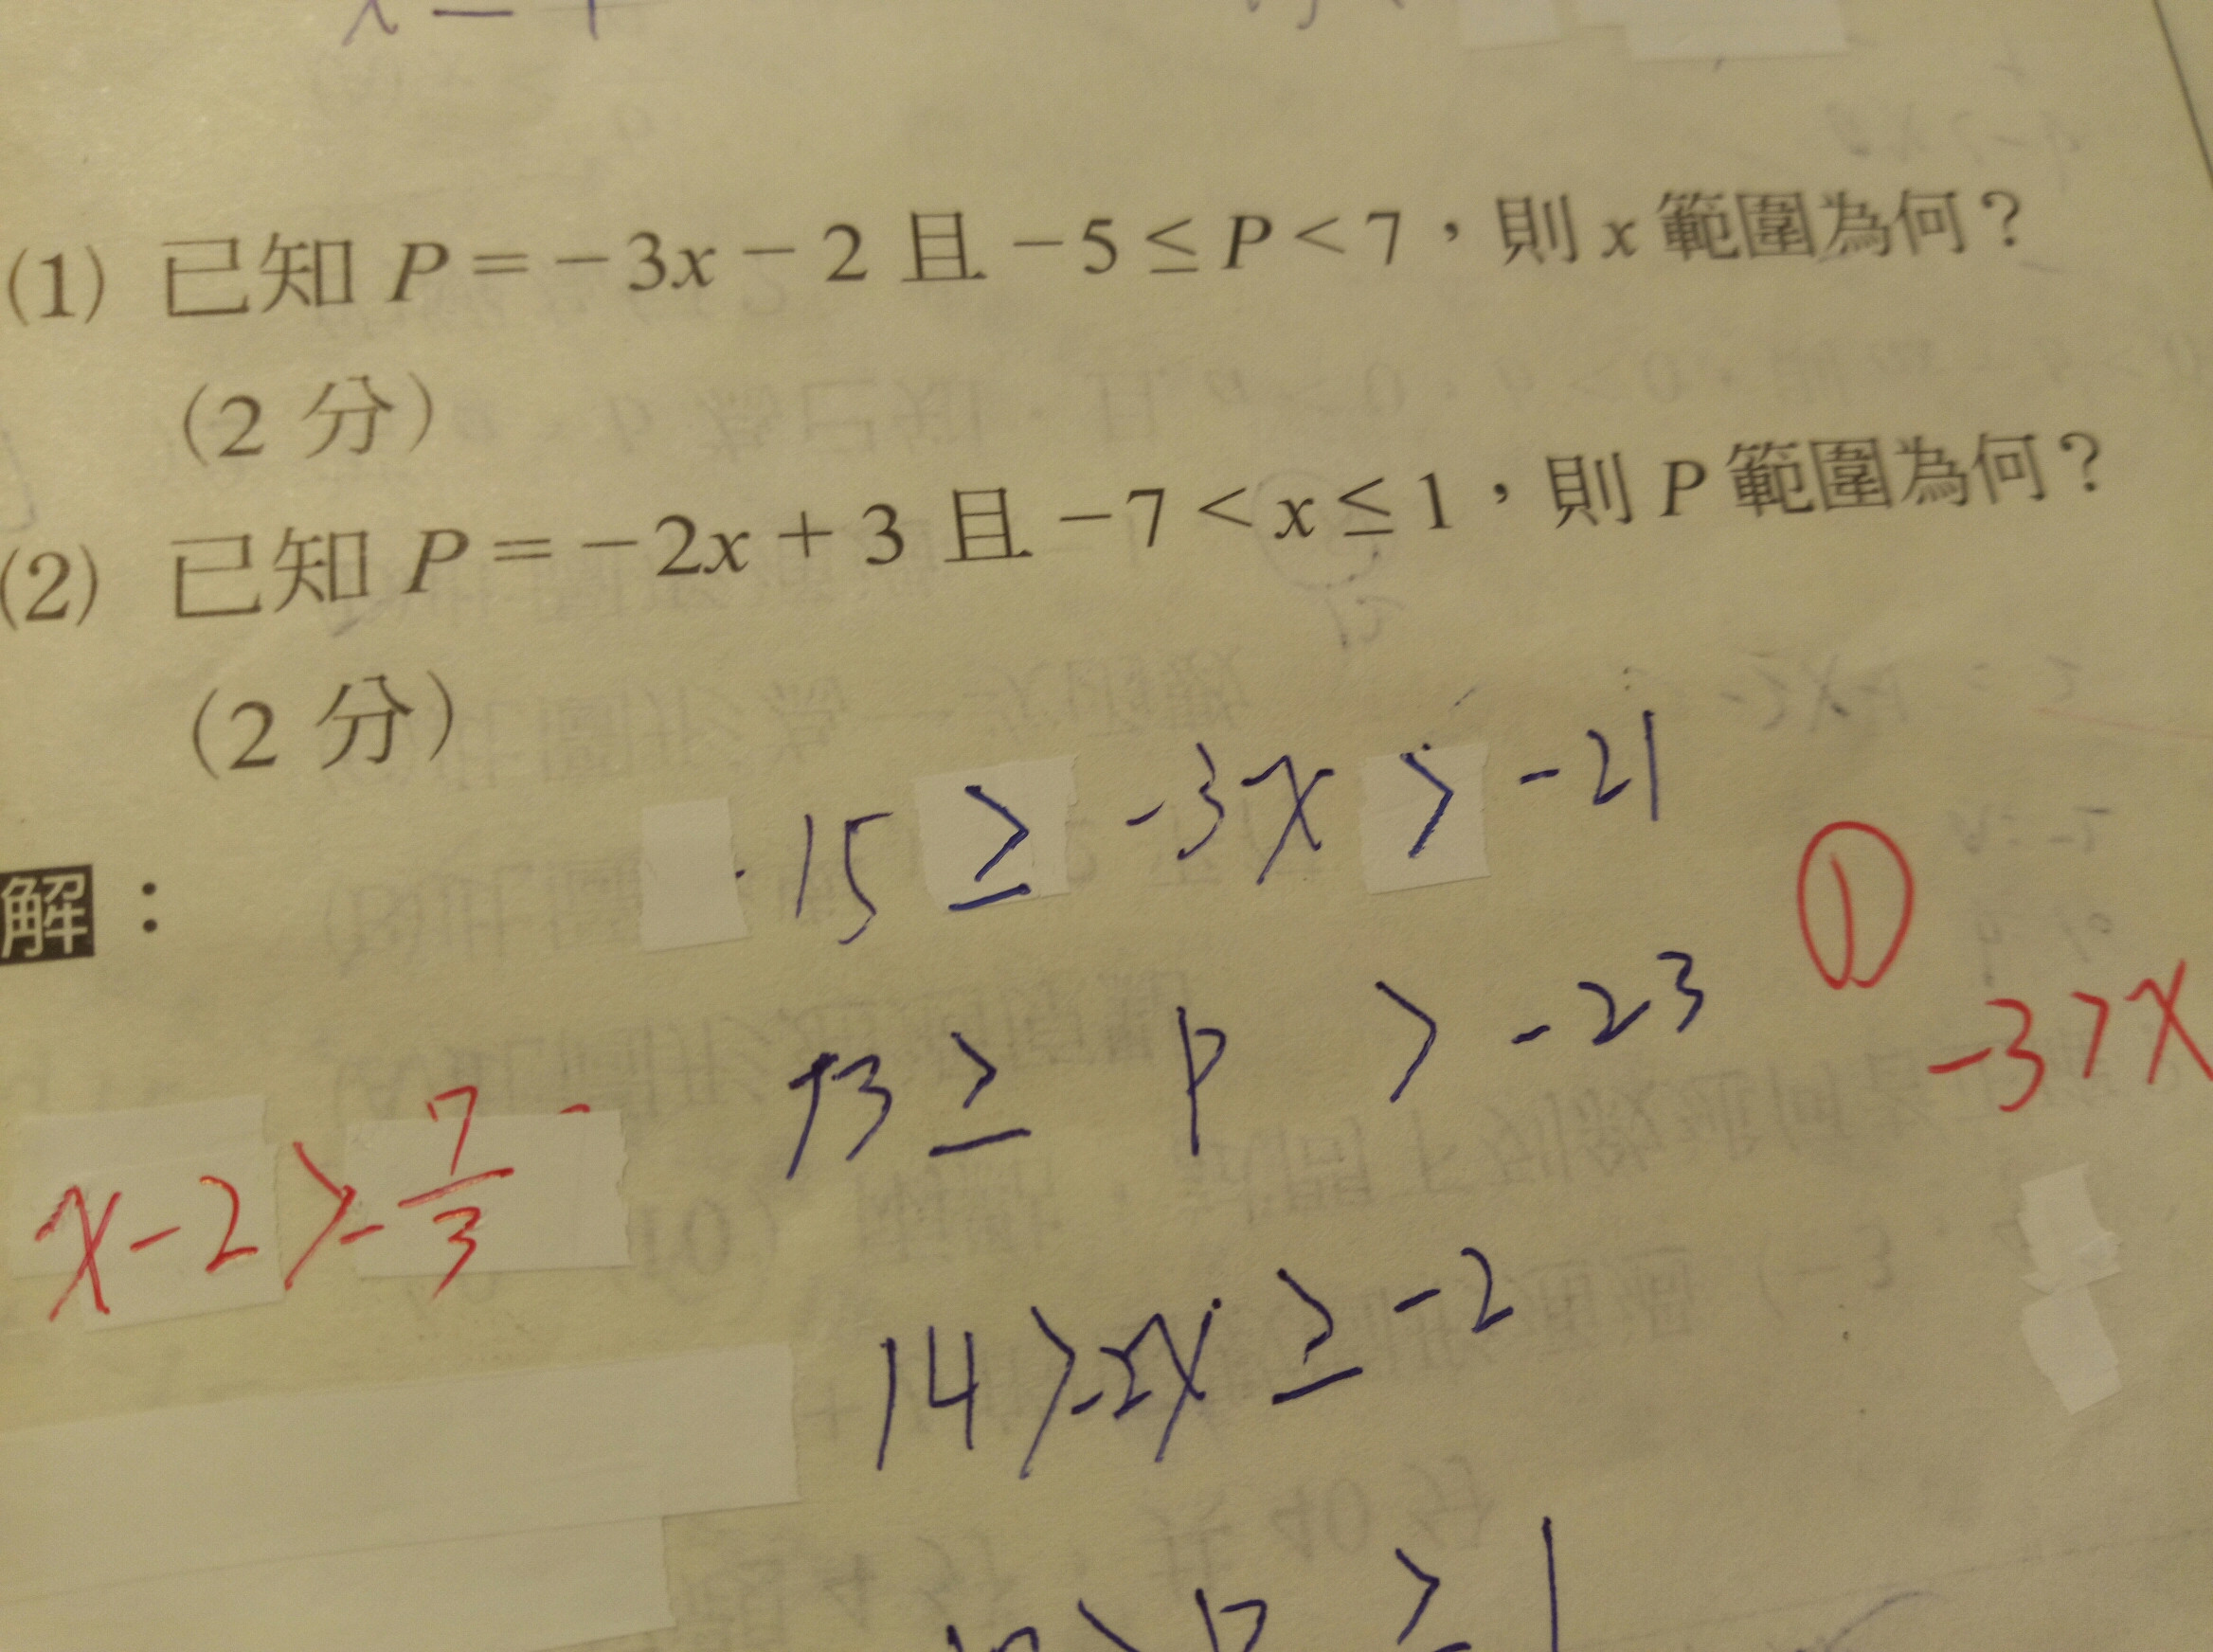 (1) 已知 P = -3x - 2 且 -5 ≤ P < 7，則 x 範圍為何？
(2 分)
(2) 已知 P = -2x + 3 且 -7 < x ≤ 1，則 P 範圍為何？
(2 分)
解：
15 ≥ -3x > -21
①
13 ≥ P > -23
-3 > x
x - 2 > -7/3
14 > -2x ≥ -2
> P ≥ 1